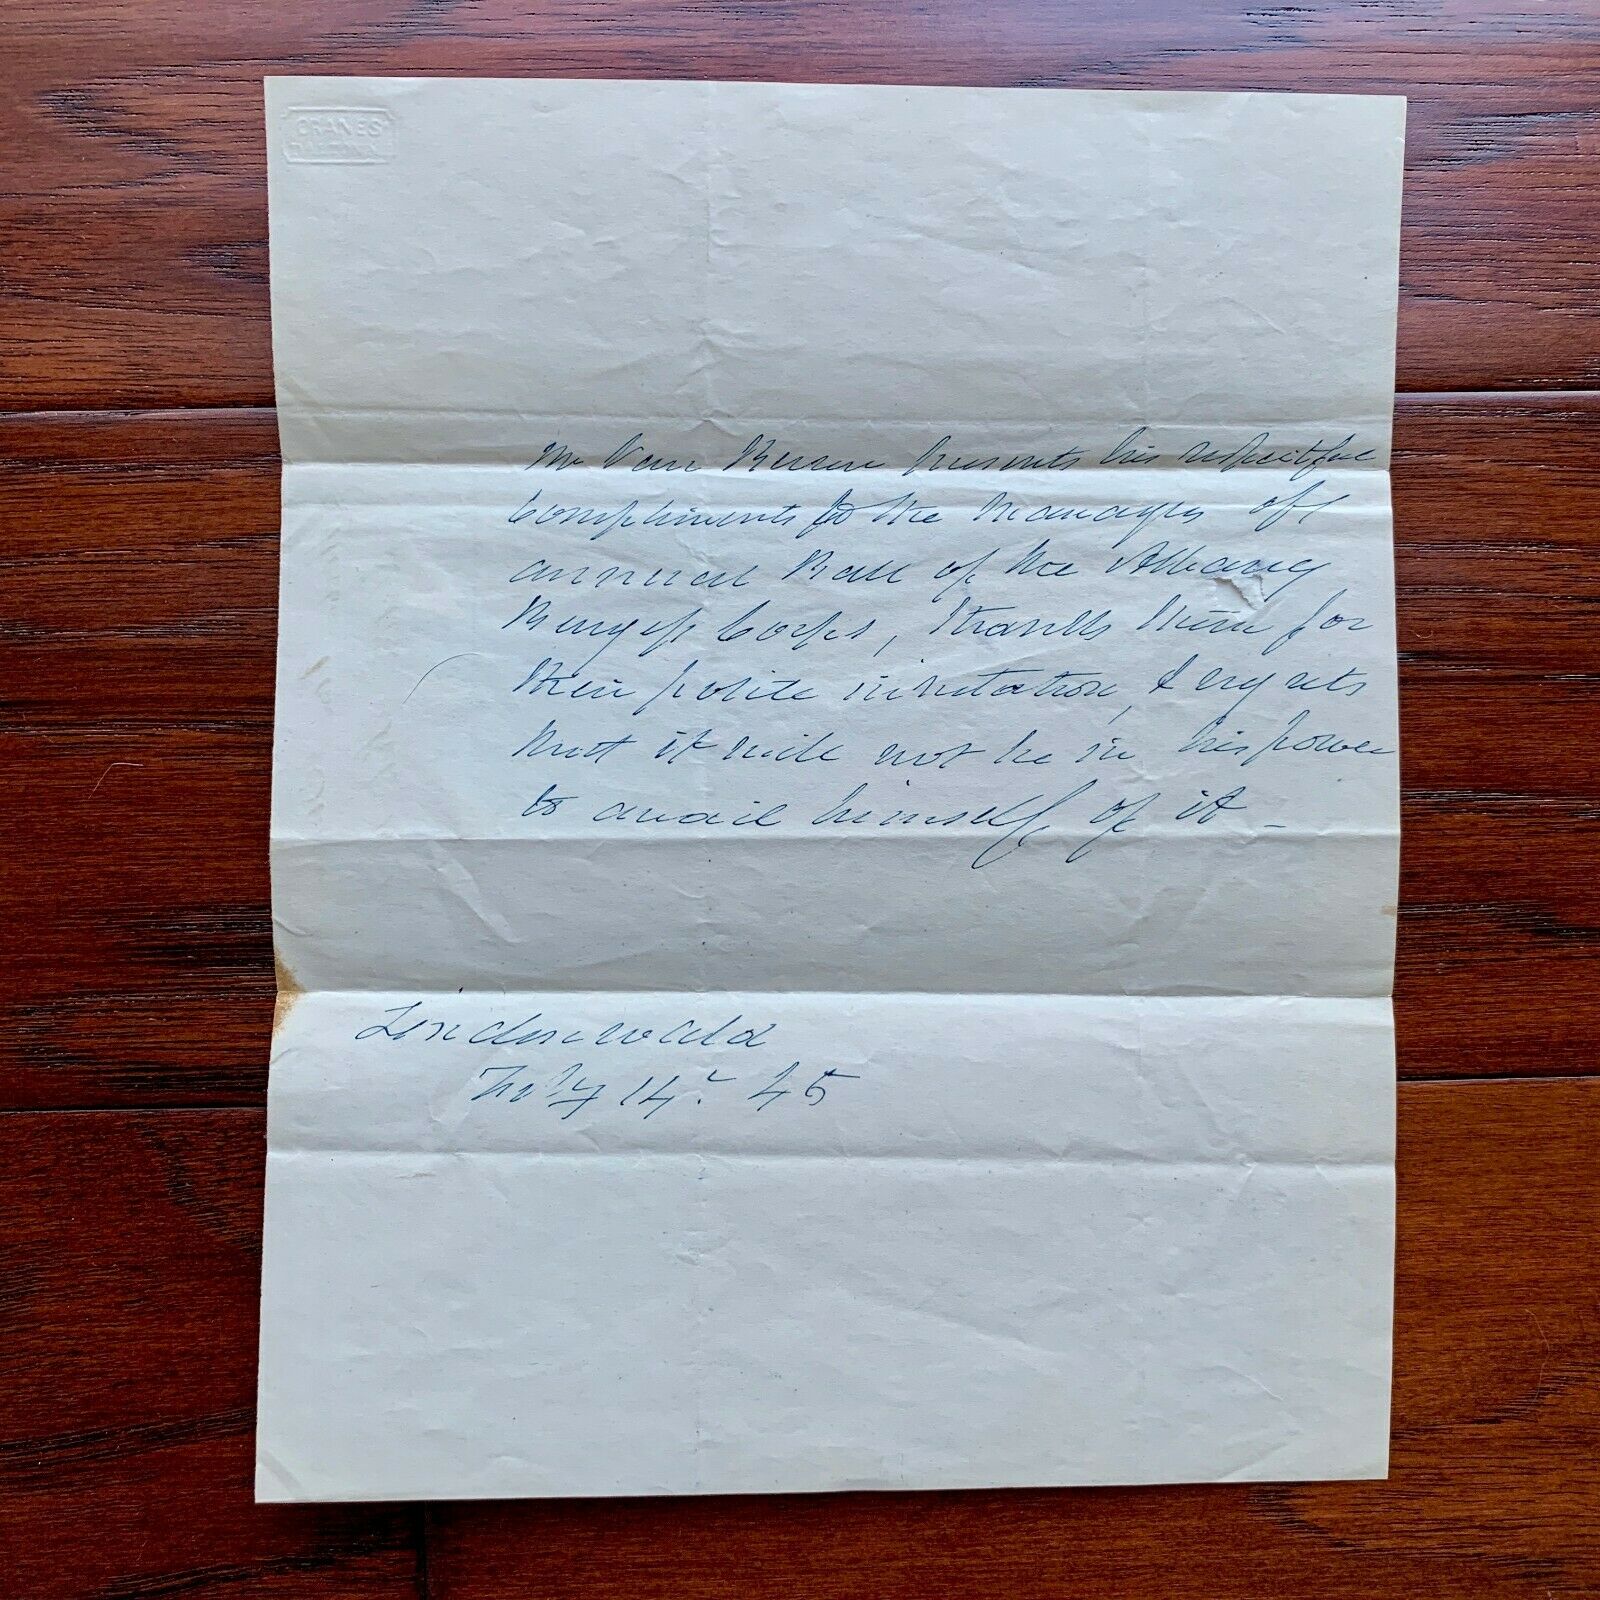 CRANES
DALTON
Mr Van Buren presents his respectful
compliments to the Managers of
annual Ball of the Albany
Burgess Corps, thanks them for
their polite invitation, & regrets
that it will not be in his power
to avail himself of it —
Lindenwald
14 45